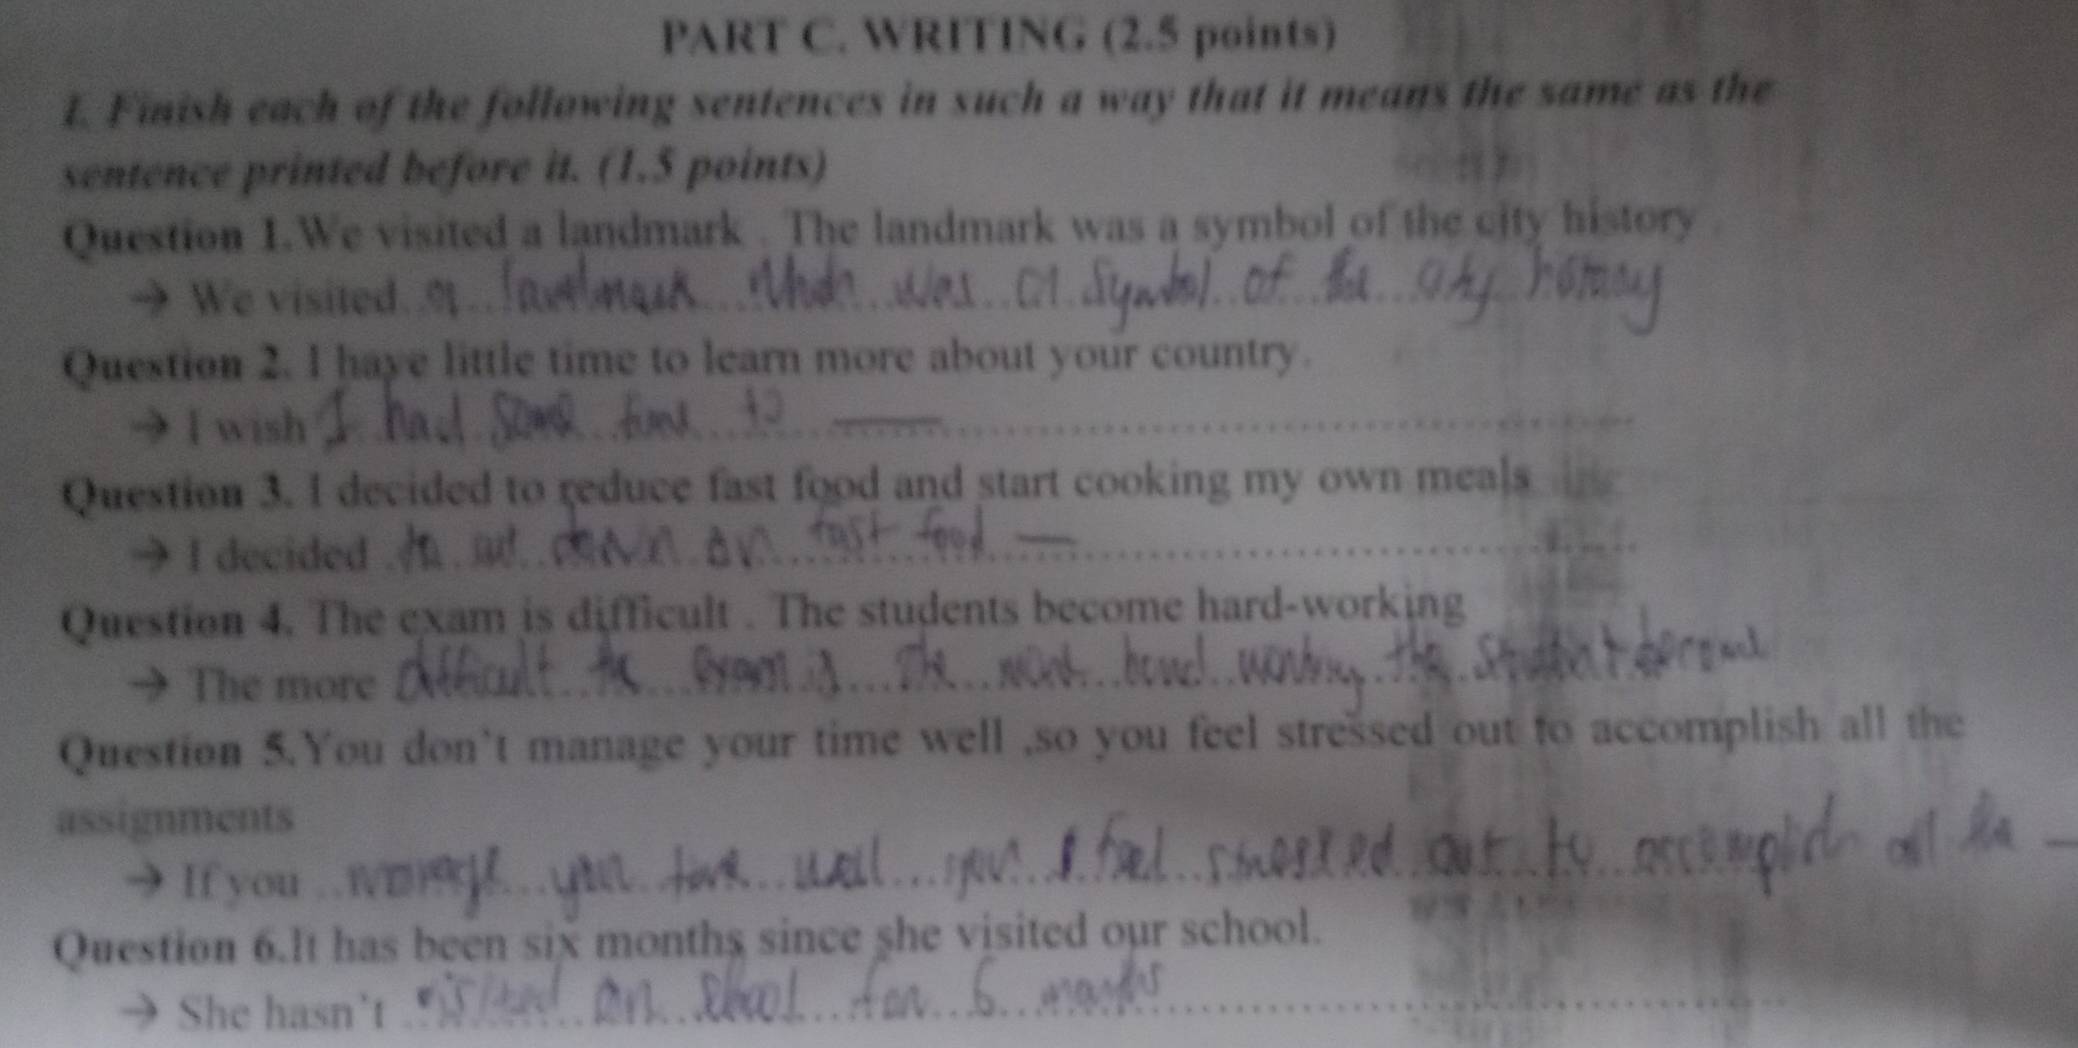 PART C. WRITING (2.5 points)
I. Finish each of the following sentences in such a way that it means the same as the
sentence printed before it. (1.5 points)
Question 1.We visited a landmark . The landmark was a symbol of the city history .
→ We visited a landmark which was a symbol of the city history
Question 2. I have little time to learn more about your country.
→ I wish I had some time to
Question 3. I decided to reduce fast food and start cooking my own meals
→ I decided to cut down on fast food
Question 4. The exam is difficult . The students become hard-working
→ The more difficult the exam is the more hard working the student become
Question 5.You don't manage your time well ,so you feel stressed out to accomplish all the
assignments
→ If you manage your time well you feel stressed out to accomplish all the
Question 6.It has been six months since she visited our school.
→ She hasn't visited our school for 6 months